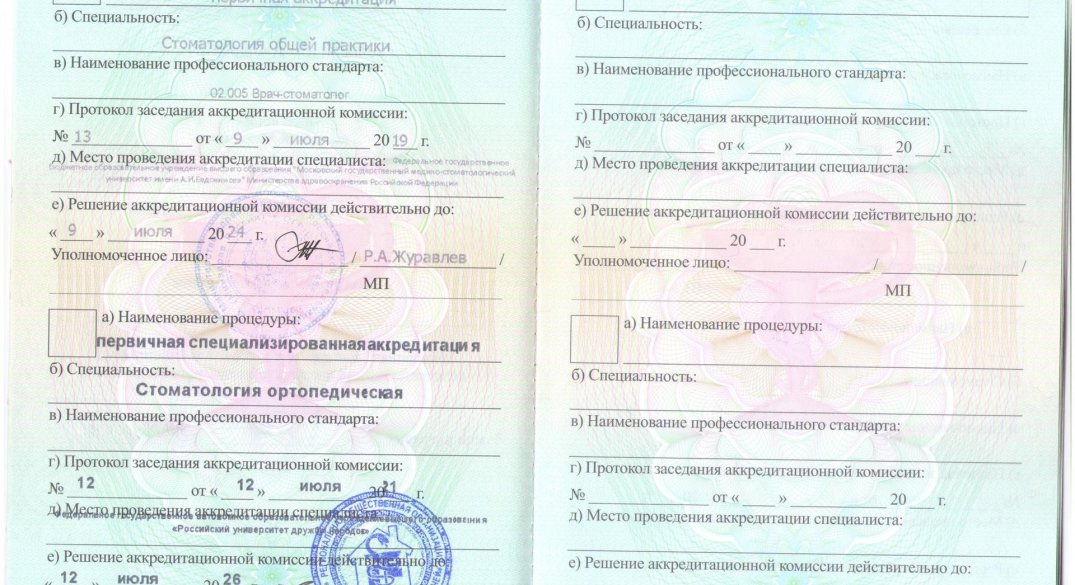 первичная аккредитация
б) Специальность:
Стоматология общей практики
в) Наименование профессионального стандарта:
02.005 Врач-стоматолог
г) Протокол заседания аккредитационной комиссии:
№ 13 от « 9 » июля 2019 г.
д) Место проведения аккредитации специалиста: Федеральное государственное
бюджетное образовательное учреждение высшего образования "Московский государственный медико-стоматологический
университет имени А.И.Евдокимова" Министерства здравоохранения Российской Федерации
е) Решение аккредитационной комиссии действительно до:
« 9 » июля 2024 г.
Уполномоченное лицо: / Р.А.Журавлев /
МП
а) Наименование процедуры:
первичная специализированная аккредитация
б) Специальность:
Стоматология ортопедическая
в) Наименование профессионального стандарта:
г) Протокол заседания аккредитационной комиссии:
№ 12 от « 12 » июля 2021 г.
д) Место проведения аккредитации специалиста:
Федеральное государственное автономное образовательное высшего образования
«Российский университет дружбы народов»
е) Решение аккредитационной комиссии действительно до:
« 12 » июля 2026
б) Специальность:
в) Наименование профессионального стандарта:
г) Протокол заседания аккредитационной комиссии:
№ от « » 20 г.
д) Место проведения аккредитации специалиста:
е) Решение аккредитационной комиссии действительно до:
« » 20 г.
Уполномоченное лицо: / /
МП
а) Наименование процедуры:
б) Специальность:
в) Наименование профессионального стандарта:
г) Протокол заседания аккредитационной комиссии:
№ от « » 20 г.
д) Место проведения аккредитации специалиста:
е) Решение аккредитационной комиссии действительно до: